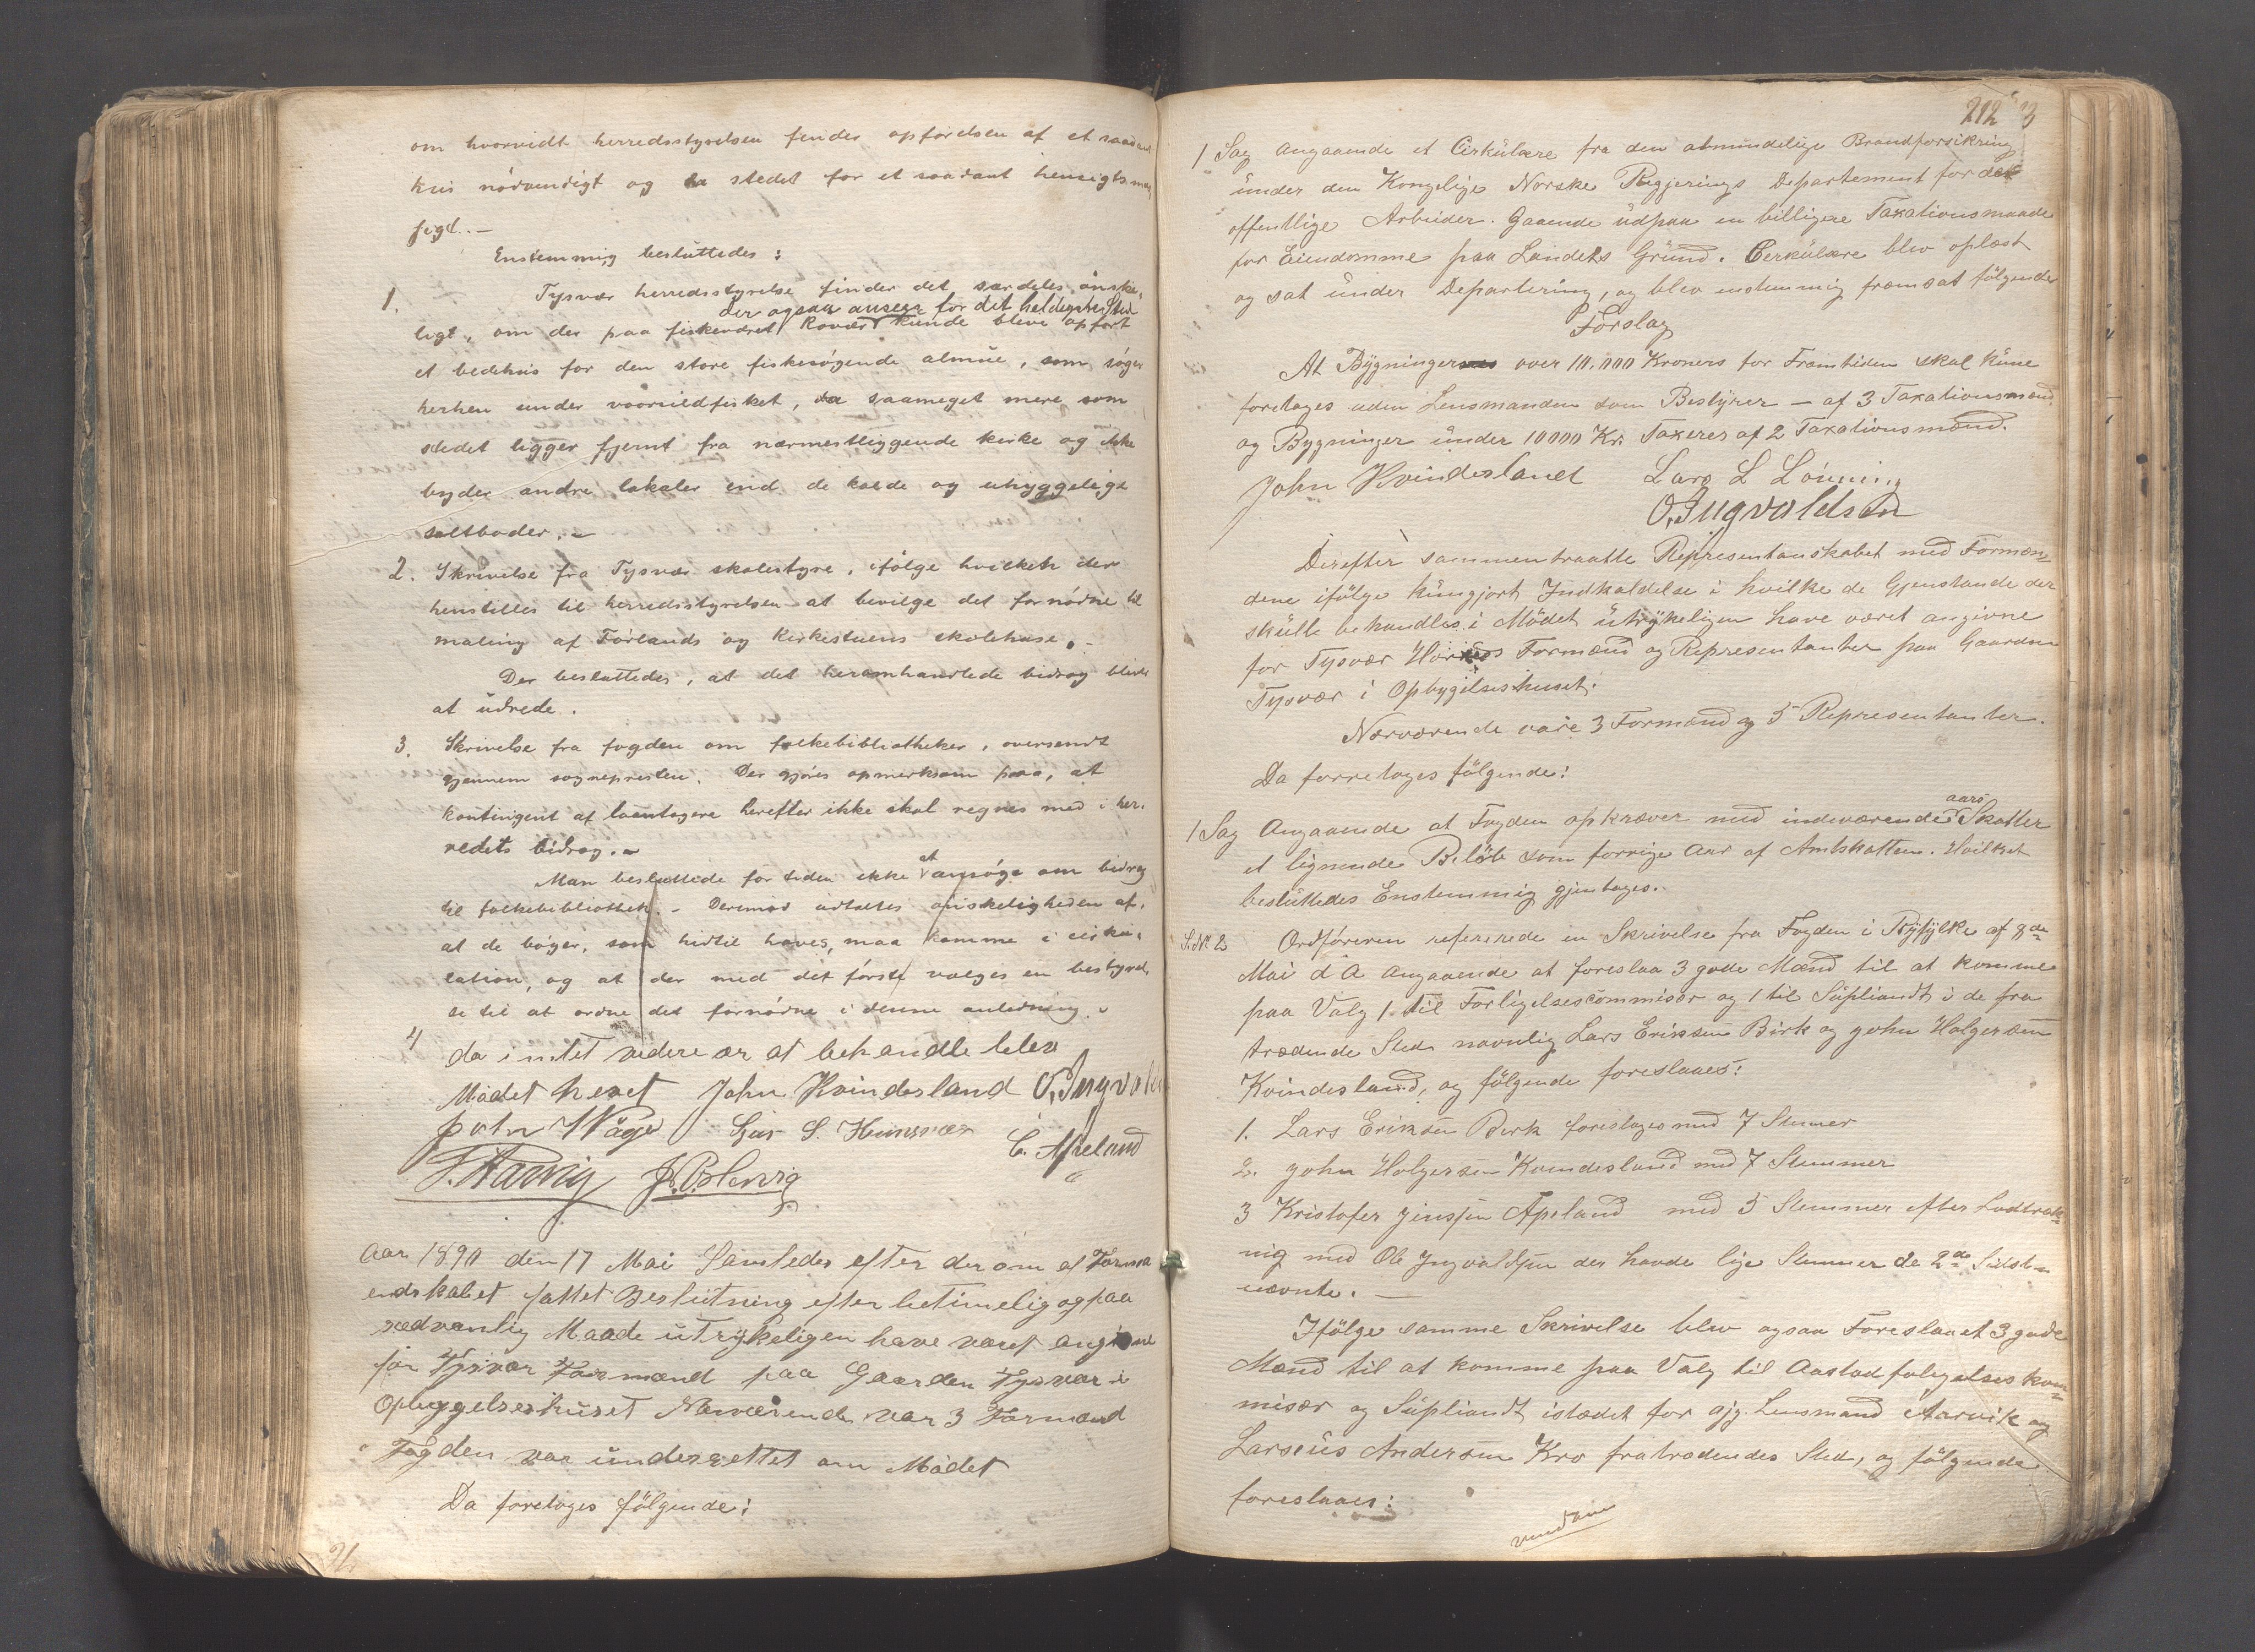 om hvorvidt herredsstyrelsen finder opførelsen af et saadant
hus nödvendigt og stedet for et saadant hensigtsmæs
sigt. -
Enstemmig besluttedes :
1. Tysvær herredsstyrelse finder det særdeles önske-
der ogsaa ansees for det heldigste Sted
ligt, om der paa fiskeværet Rovær kunde blive opført
et bedehus for den store fiskesögende almue, som söger
herhen under vaarsildfisket, saameget mere som
stedet ligger fjernt fra nærmestliggende kirke og ikke
byder andre lokaler end de kolde og uhyggelige
saltboder. -
2. Skrivelse fra Tysvær skolestyre, ifølge hvilken der
henstilles til herredsstyrelsen at bevilge det fornödne til
maling af Førlands og Kirkestuens skolehuse. -
Der besluttedes, at det heromhandlede bidrag bliver
at udrede.
3. Skrivelse fra fogden om folkebibliotheker, oversendt
gjennem sognepresten. Der gjöres opmerksom paa, at
kontingent af laantagere herefter ikke skal regnes med i her-
redets bidrag. -
Man besluttede for tiden ikke at ansøge om bidrag
til folkebibliothek. - Derimod udtaltes önskeligheden af,
at de böger, som hidtil haves, maa komme i cirku-
lation, og at der med det förste vælges en bestyrel-
se til at ordne det fornödne i denne anledning. -
4 da intet videre er at behandle blev
Mødet hevet John Kvindesland O. Ingvalds
John Våge Sjur S. Hunsvær
C. Apeland
T. Aarvig
Aar 1890 den 17 Mai Samledes efter derom af Forma
endskabet fattet Beslutning efter betimelig og paa
sædvanlig Maade utrykeligen have været angivne
for Tysvær Formænd paa Gaarden Tysvær i
Opbyggelseshuset Nærværende var 3 Formænd
Fogden var underrettet om Mödet
Da foretoges fölgende:
212
1 Sag angaaende et Cirkulære fra den almindelige Brandforsikring
under den Kongelige Norske Regjerings Departement for det
offentlige Arbeider. Gaaende udpaa en billigere Taxationsmaade
for Eiendomme paa Landets Grund. Cerkulære blev oplæst
og sat under Departering, og blev enstemmig fremsat fölgende
Forslag
At Bygninger over 10.000 Kroners for Fremtiden skal kune
foretages uden Lensmanden som Bestyrer — af 3 Taxationsmænd
og Bygninger under 10000 Kr. Taxeres af 2 Taxationsmænd.
John Kvindesland Lars L Lönning
O. Ingvaldsen
Derefter sammentraatte Representanskabet med Forman-
dene ifölge kungjort Indkaldelse i hvilke de Gjenstande der
skulle behandles i Mödet utrykeligen have været angivne
for Tysvær Formænd og Representanter paa Gaarden
Tysvær i Opbygelseshuset.
Nærværende vare 3 Formænd og 5 Representanter.
Da forretoges fölgende:
1 Sag Angaaende at Fogden opkræver med indeværende aars Skatter
et lignende Belöb som forrige Aar af Amtskatten. Hvilket
besluttedes Enstemmig gjentages.
S. No 2 Ordföreren refererede en Skrivelse fra Fogden i Ryfylke af 8de
Mai d A angaaende at foreslaa 3 gode Mænd til at komme
paa Valg 1 til Forligelsescommisær og 1 til Supliandt i de fra
trædende Sted navnlig Lars Eriksen Birk og John Holgersen
Kvindesland, og fölgende foreslaaes:
1. Lars Eriksen Birk foreslages med 7 Stemer
2. John Holgersen Kvindesland med 7 Stemmer
3 Kristofer Jensen Apeland med 5 Stemmer efter Lodtræk-
ning med Ole Ingvaldsen der havde lige Stemmer de 2de Sidst-
nævnte. —
Ifölge samme Skrivelse blev ogsaa Foreslaaet 3 gode
Mænd til at komme paa Valg til Aastadfoligelses kom-
misær og Supliandt istædet for gjg. Lensmand Aarvik og
Larseus Andersen Kro fratrædendes Sted, og fölgende
foreslaaes: